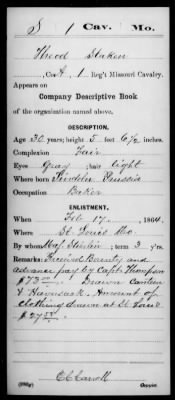 S | 1 | Cav. | Mo.
Theod Staken
, Co. A, 1 Reg't Missouri Cavalry.
Appears on
Company Descriptive Book
of the organization named above.
DESCRIPTION.
Age 30 years; height 5 feet 6 1/2 inches.
Complexion Fair
Eyes Gray; hair light
Where born Prussia
Occupation Baker
ENLISTMENT.
When Feb 17, 1864.
Where St. Louis Mo.
By whom Maj. ; term 3 y'rs.
Remarks: Received Bounty and
advance pay by Capt. Thompson
$73.00 Drawn Canteen
& Haversack. Amount of
clothing drawn at St Louis
$27
Copyist.